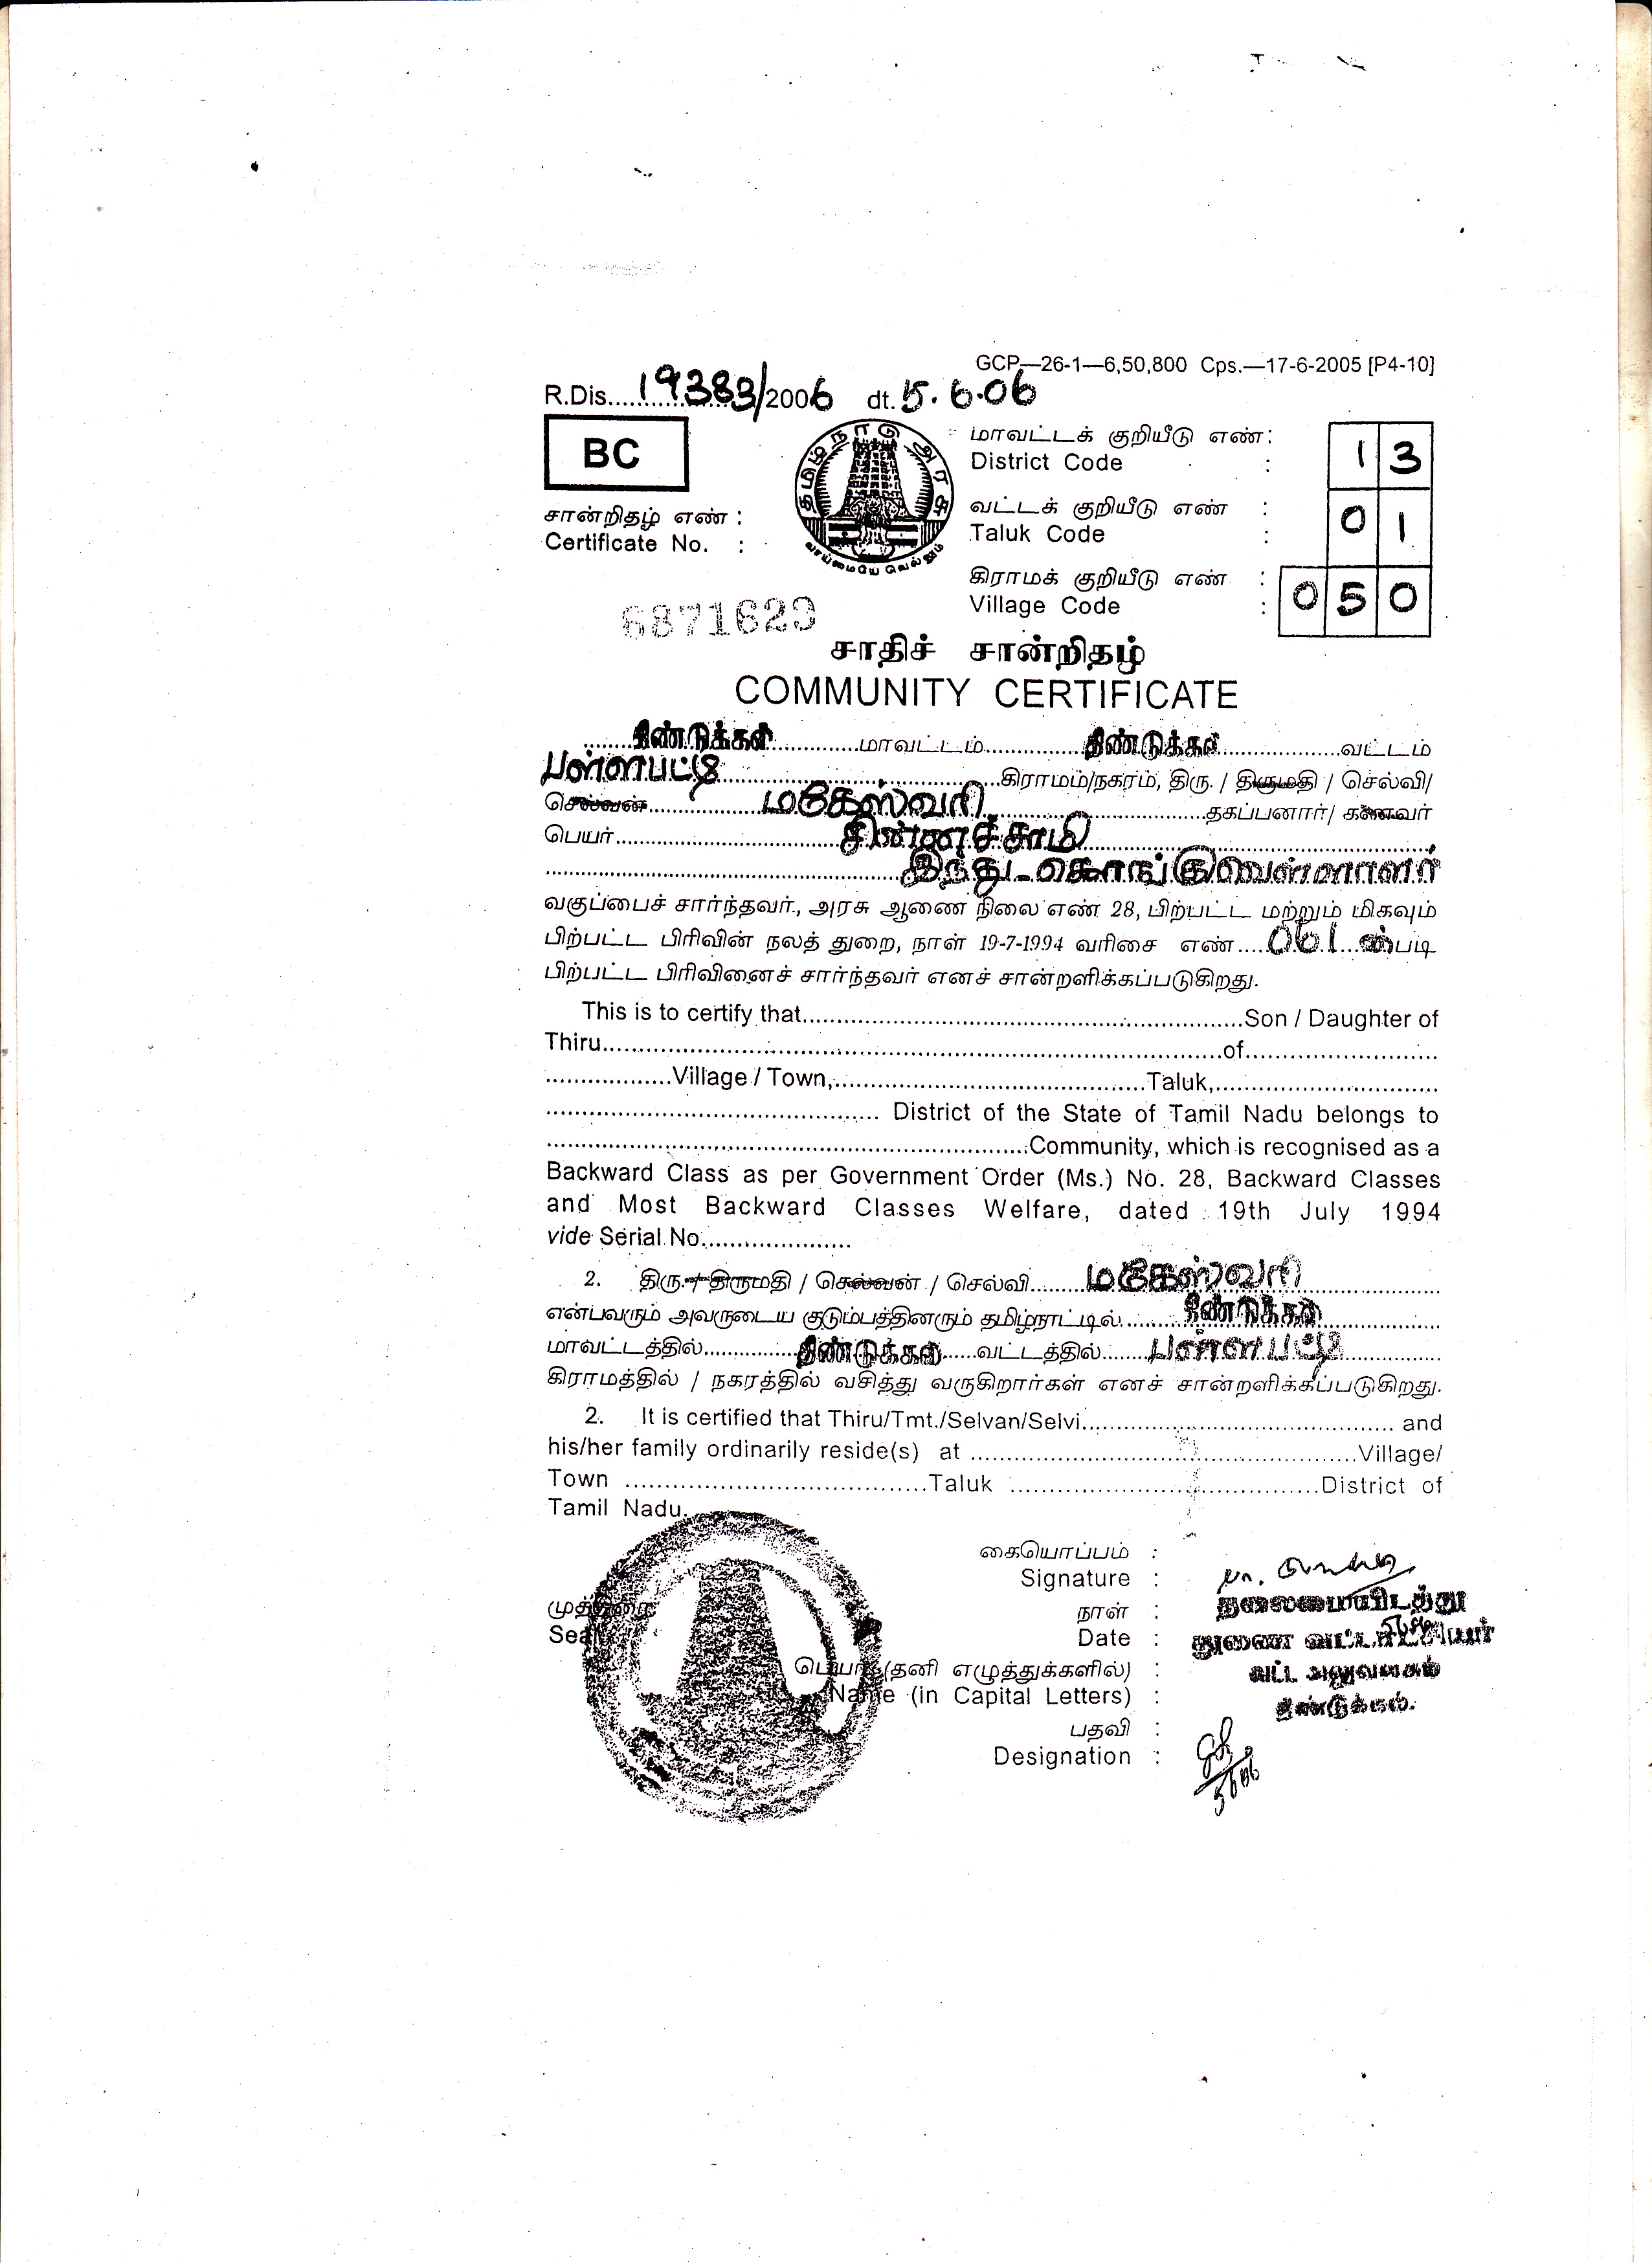 GCP—26-1—6,50,800 Cps.—17-6-2005 [P4-10]
R.Dis....19383/2006 dt. 5.6.06
BC
தமிழ்நாடு அரசு
வாய்மையே வெல்லும்
மாவட்டக் குறியீடு எண் :
District Code : 1 3
சான்றிதழ் எண் :
Certificate No. :
வட்டக் குறியீடு எண் :
Taluk Code : 0 1
கிராமக் குறியீடு எண் :
Village Code : 0 5 0
6871629
சாதிச் சான்றிதழ்
COMMUNITY CERTIFICATE
......திண்டுக்கல்..........மாவட்டம்..........திண்டுக்கல்..........வட்டம்
பள்ளபட்டி..........கிராமம்/நகரம், திரு. / திருமதி / செல்வி/
செல்வன்..........மகேஸ்வரி..........தகப்பனார்/ கணவர்
பெயர்..........சின்னச்சாமி..........
..........இந்து-கொங்குவெள்ளாளர்
வகுப்பைச் சார்ந்தவர், அரசு ஆணை நிலை எண் 28, பிற்பட்ட மற்றும் மிகவும்
பிற்பட்ட பிரிவின் நலத் துறை, நாள் 19-7-1994 வரிசை எண்....061....ன்படி
பிற்பட்ட பிரிவினைச் சார்ந்தவர் எனச் சான்றளிக்கப்படுகிறது.
This is to certify that..........Son / Daughter of
Thiru..........of..........
..........Village / Town,..........Taluk,..........
.......... District of the State of Tamil Nadu belongs to
..........Community, which is recognised as a
Backward Class as per Government Order (Ms.) No. 28, Backward Classes
and Most Backward Classes Welfare, dated 19th July 1994
vide Serial No...........
2. திரு. / திருமதி / செல்வன் / செல்வி..........மகேஸ்வரி..........
என்பவரும் அவருடைய குடும்பத்தினரும் தமிழ்நாட்டில்..........திண்டுக்கல்..........
மாவட்டத்தில்..........திண்டுக்கல்..........வட்டத்தில்..........பள்ளபட்டி..........
கிராமத்தில் / நகரத்தில் வசித்து வருகிறார்கள் எனச் சான்றளிக்கப்படுகிறது.
2. It is certified that Thiru/Tmt./Selvan/Selvi.......... and
his/her family ordinarily reside(s) at ..........Village/
Town ..........Taluk ..........District of
Tamil Nadu.
கையொப்பம் :
Signature :
தலைமையிடத்து
முத்திரை
நாள் :
Seal
Date :
துணை வட்டாட்சியர்
பெயர் (தனி எழுத்துக்களில்) :
வட்ட அலுவலகம்
Name (in Capital Letters) :
திண்டுக்கல்.
பதவி :
Designation :
5606